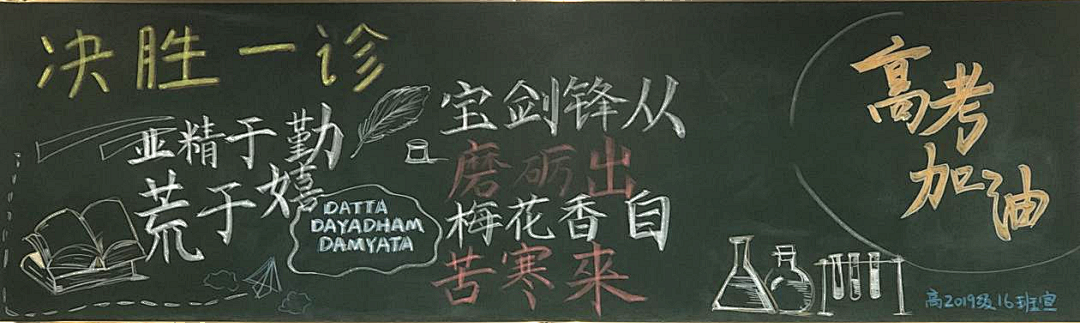 决胜一诊
业精于勤
荒于嬉
DATTA
DAYADHAM
DAMYATA
宝剑锋从
磨砺出
梅花香自
苦寒來
高考
加油
高2019级16班宣